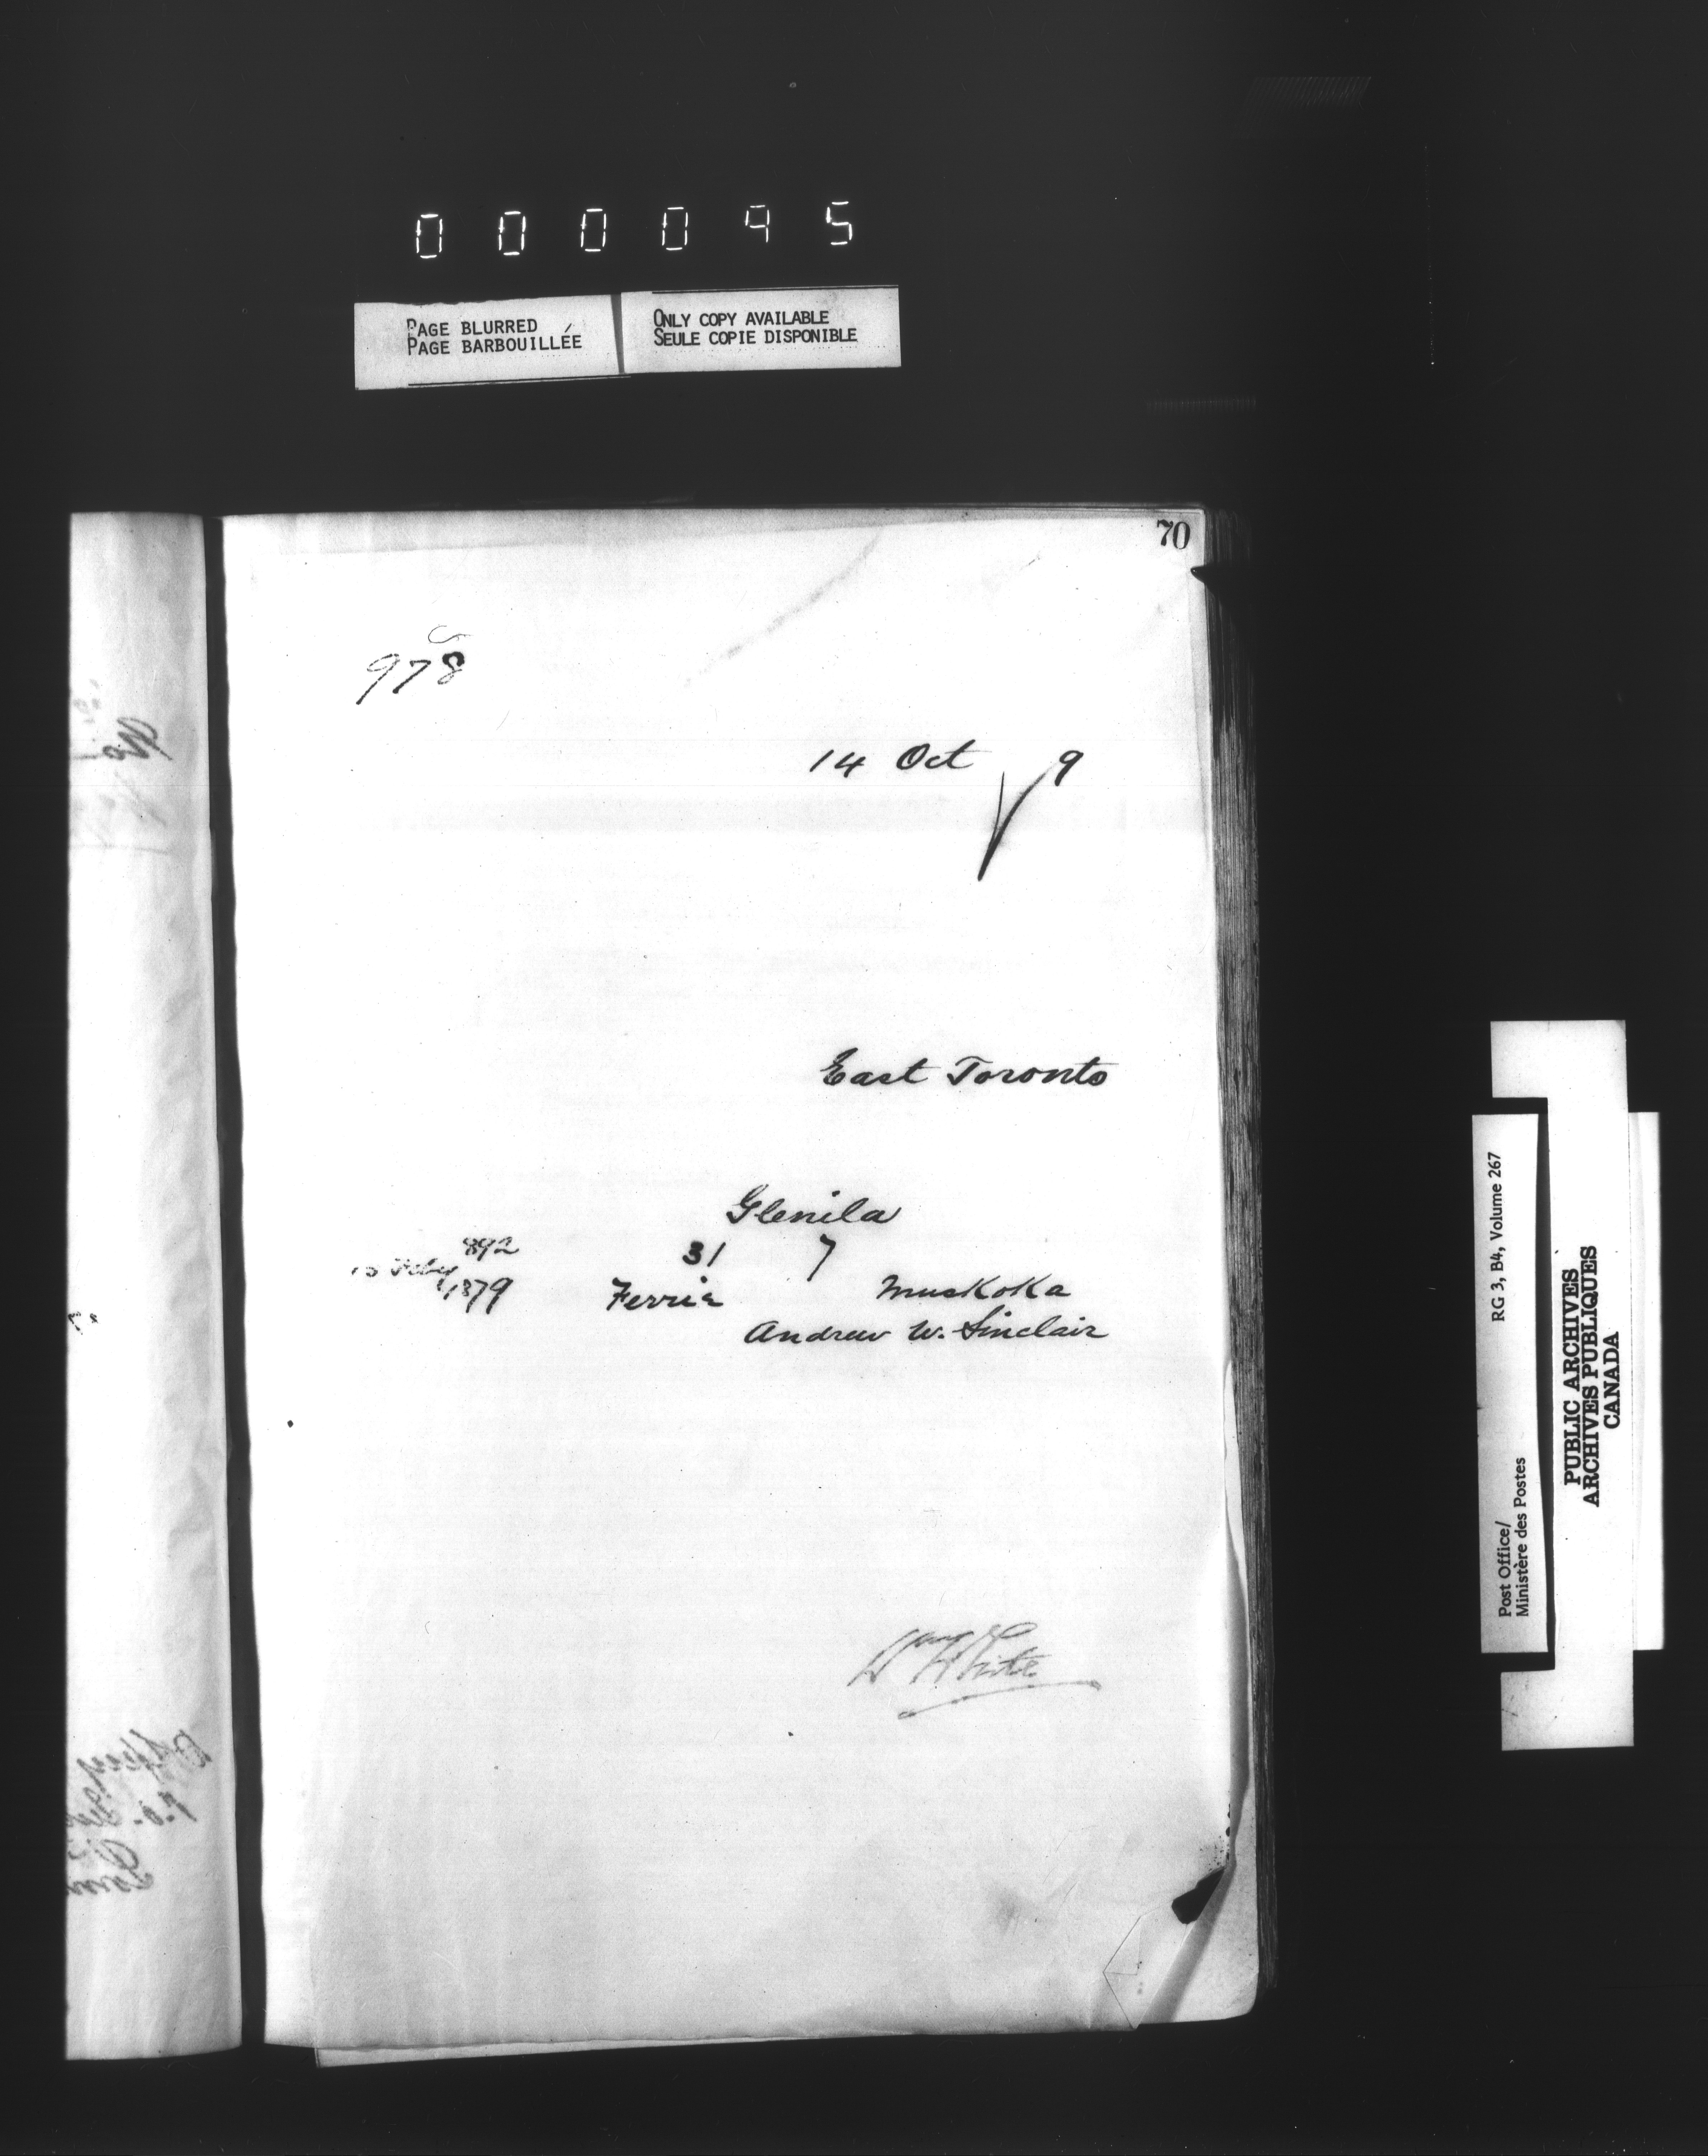 000095
PAGE BLURRED
PAGE BARBOUILLÉE
ONLY COPY AVAILABLE
SEULE COPIE DISPONIBLE
70
978
14 Oct 9
East Toronto
Glenila
892
31 7
15 Feby
1879
Ferrie Muskoka
Andrew W. Sinclair
Wm White
RG 3, B4, Volume 267
Post Office/
Ministère des Postes
PUBLIC ARCHIVES
ARCHIVES PUBLIQUES
CANADA